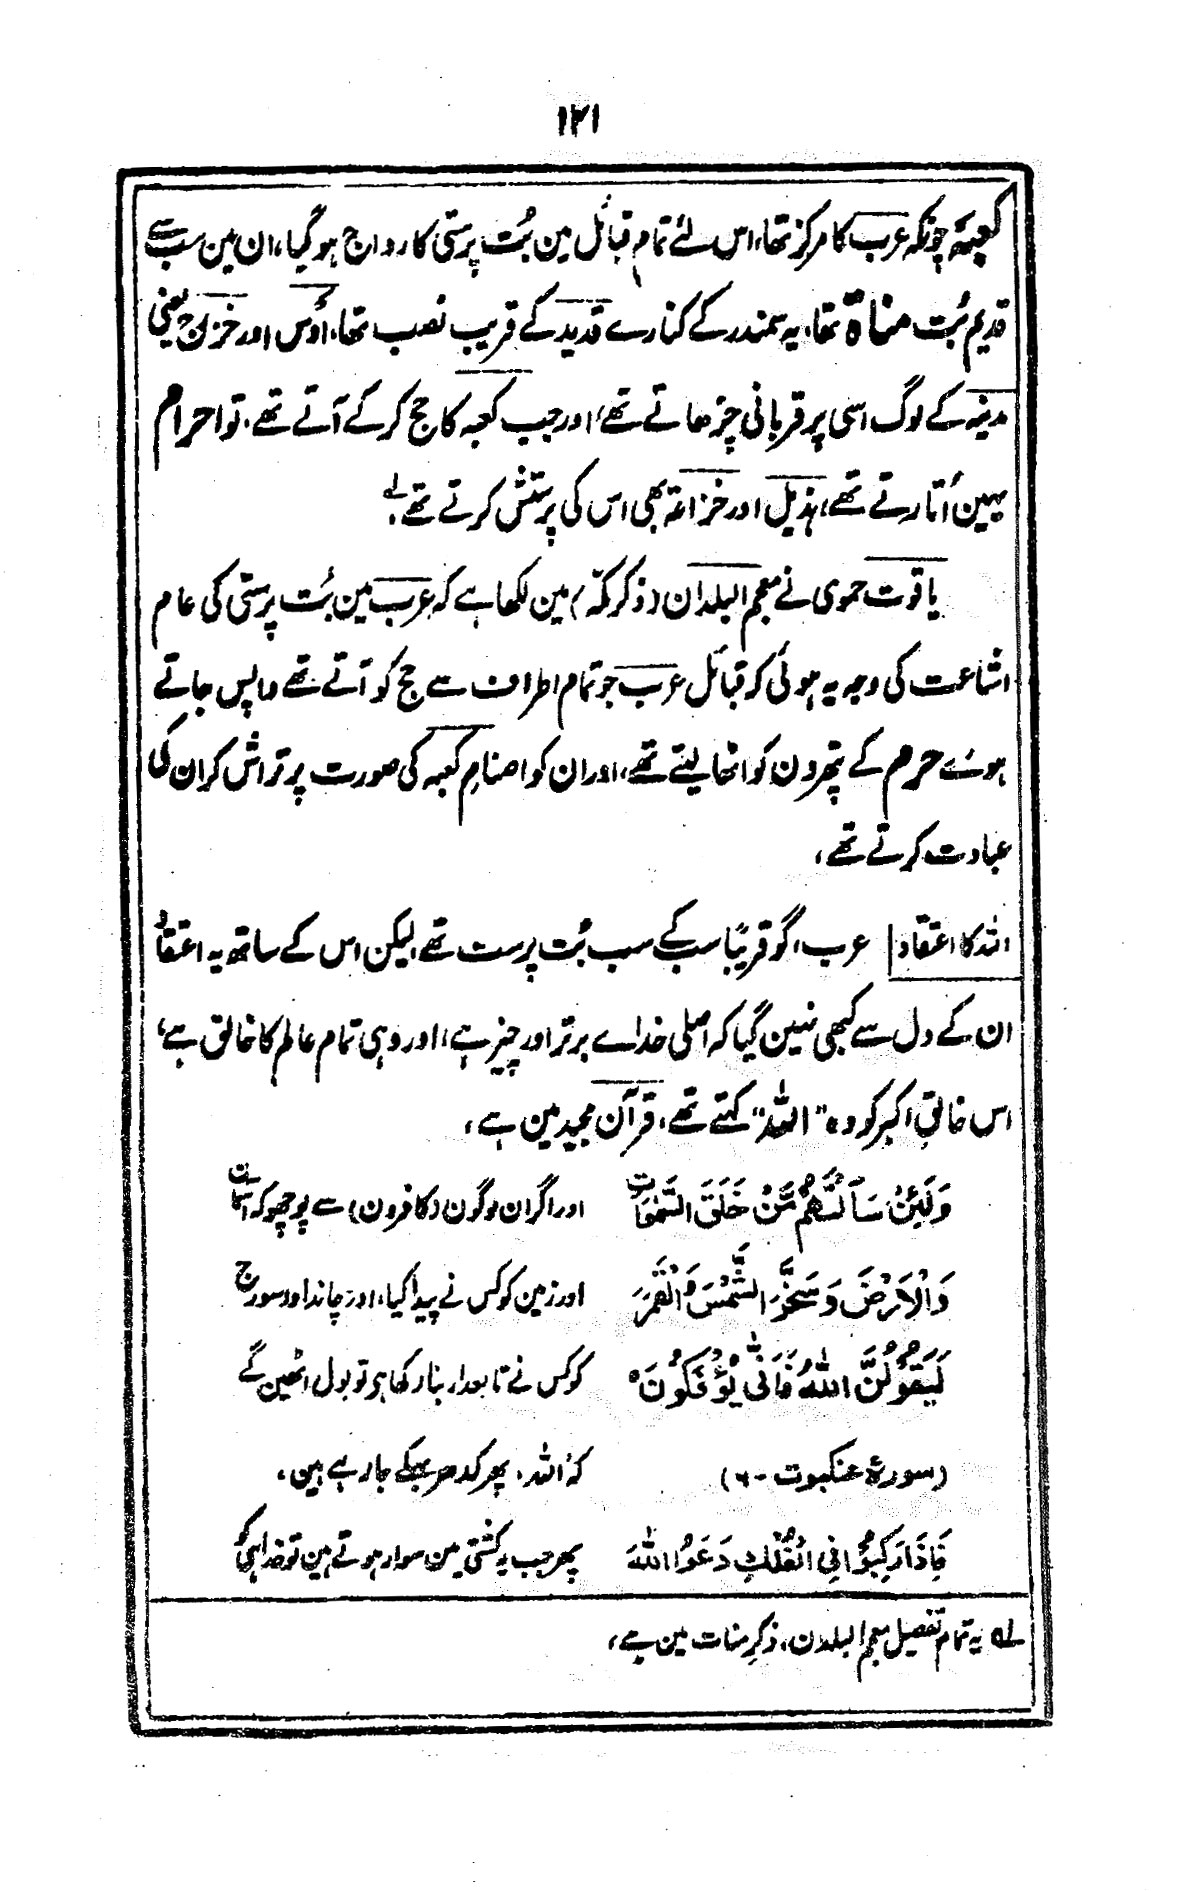 ۱۲۱
کعبہ چونکہ عرب کا مرکز تھا، اس لئے تمام قبائل مین بُت پرستی کا رواج ہو گیا، ان مین سب سے
قدیم بُت مناۃ تھا، یہ سمندر کے کنارے قدید کے قریب نصب تھا، اَوس اور خزرج یعنی
مدینہ کے لوگ اسی پر قربانی چڑھاتے تھے، اور جب کعبہ کا حج کر کے آتے تھے، تو احرام
یہین اُتارتے تھے، ہذیل اور خزاعۃ بھی اس کی پرستش کرتے تھے، لہ
یاقوت حموی نے معجم البلدان (ذکر مکّہ) مین لکھا ہے کہ عرب مین بُت پرستی کی عام
اشاعت کی وجہ یہ ہوئی کہ قبائل عرب جو تمام اطراف سے حج کو آتے تھے واپس جاتے
ہوئے حرم کے پتھرون کو اٹھا لیتے تھے، اور ان کو اصنامِ کعبہ کی صورت پر تراش کر ان کی
عبادت کرتے تھے،
اللہ کا اعتقاد عرب، گو قریبًا سب کے سب بُت پرست تھے، لیکن اس کے ساتھ یہ اعتقاد
ان کے دل سے کبھی نہین گیا کہ اصلی خداے برتر اور چیز ہے، اور وہی تمام عالم کا خالق ہے،
اس خالقِ اکبر کو وہ "اللہ" کہتے تھے، قرآن مجید مین ہے،
وَلَئِنْ سَاَلْتَهُمْ مَّنْ خَلَقَ السَّمٰوَاتِ اور اگر ان لوگون (کافرون) سے پوچھو کہ آسمان
وَالْاَرْضَ وَسَخَّرَ الشَّمْسَ وَالْقَمَرَ اور زمین کو کس نے پیدا کیا، اور چاند اور سورج
لَيَقُوْلُنَّ اللّٰهُ فَاَنّٰى يُؤْفَكُوْنَ ہ کو کس نے تابعدار بنا رکھا ہی تو بول اٹھین گے
(سورۂ عنکبوت - ۶) کہ اللہ، پھر کدھر بھکے جا رہے ہین،
فَاِذَا رَكِبُوْا فِى الْفُلْكِ دَعَوُا اللّٰهَ پھر جب یہ کشتی مین سوار ہوتے ہین تو خدا ہی کو
لہ یہ تمام تفصیل معجم البلدان، ذکرِ منات مین ہے،